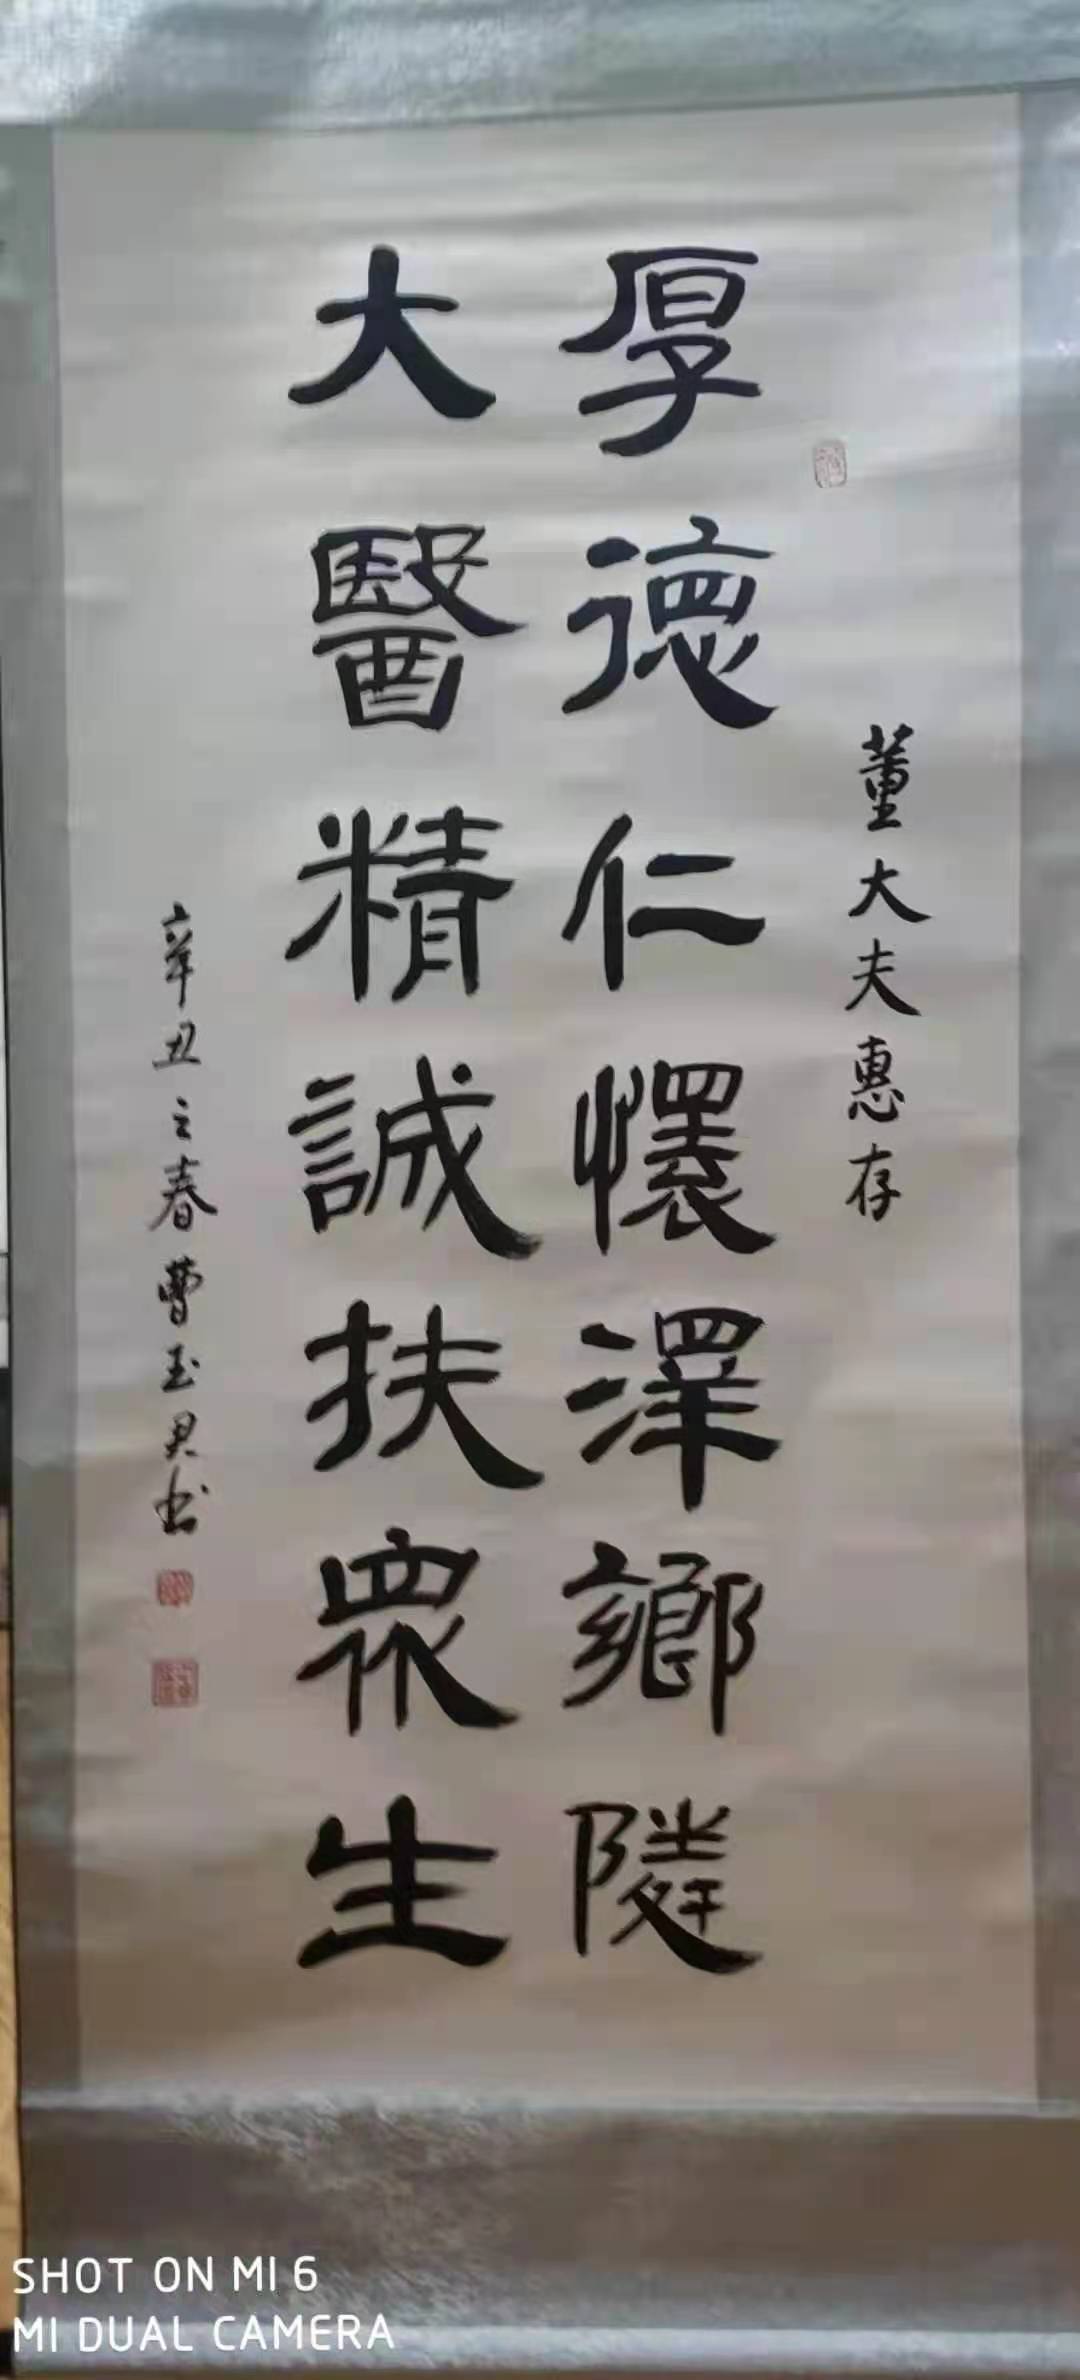 董大夫惠存
厚德仁懷澤鄉隣
大醫精誠扶眾生
辛丑之春曹玉君书
SHOT ON MI 6
MI DUAL CAMERA